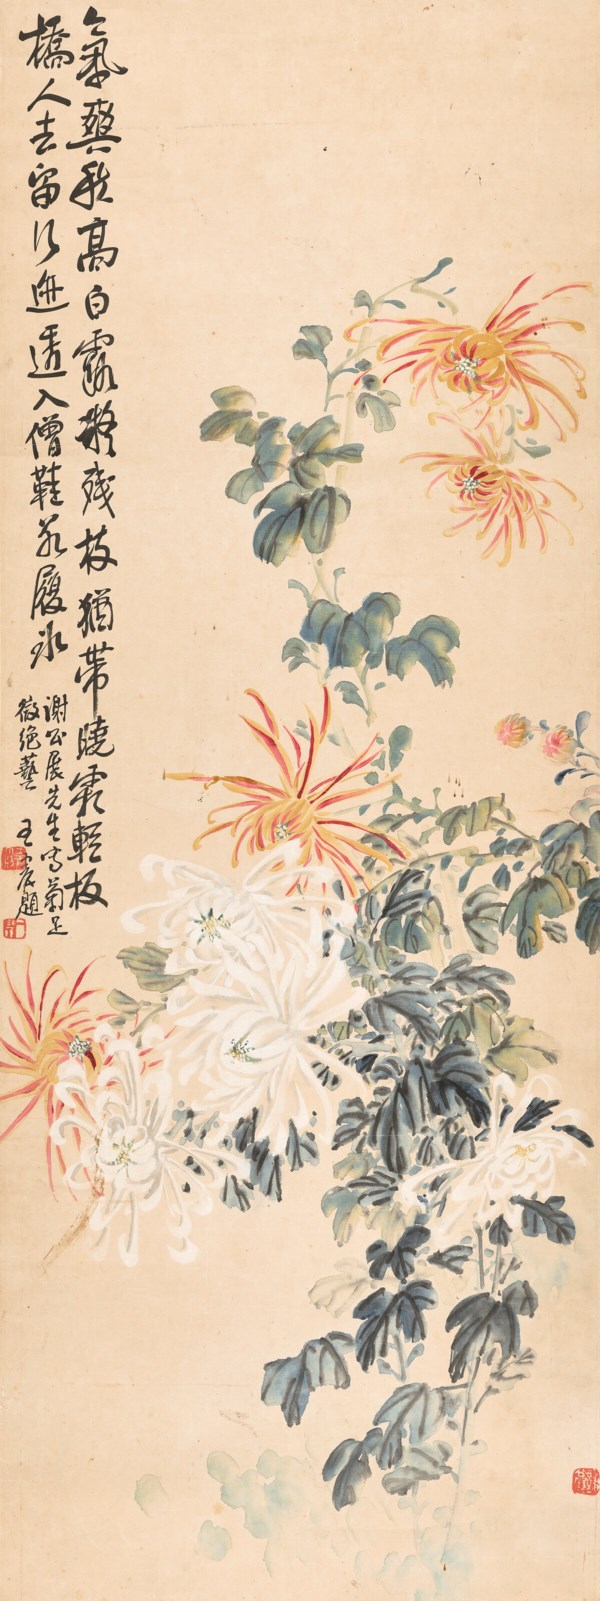 氣爽秋高白露凝殘枝猶帶曉霜輕板
橋人去留行迹透入僧鞋若履冰
謝公展先生寫菊足
徵絕藝 王 題